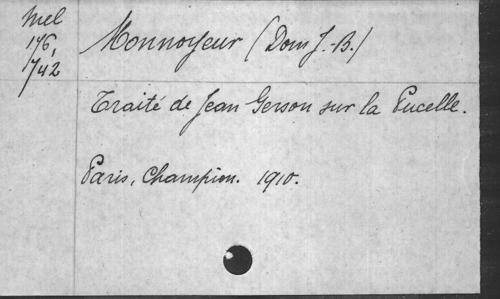 Mel
176,
1742
Monnoyeur (Dom J.-B.)
Traité de Jean Gerson sur la Pucelle.
Paris, Champion. 1910.